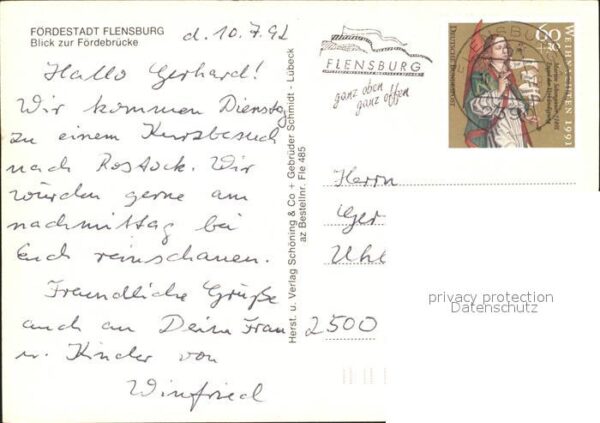 FÖRDESTADT FLENSBURG
Blick zur Fördebrücke
d. 10.7.92
Hallo Gerhard!
Wir kommen Dienstag
zu einem Kurzbesuch
nach Rostock. Wir
würden gerne am
nachmittag bei
Euch reinschauen.
Freundliche Grüße
auch an Deine Frau
u. Kinder von
Winfried
Herst. u. Verlag Schöning & Co + Gebrüder Schmidt - Lübeck
az Bestellnr. Fle 485
FLENSBURG
ganz oben
ganz offen
60
+30
WEIHNACHTEN 1991
DEUTSCHE BUNDESPOST
Herrn
Ger
Uhl
2500
privacy protection
Datenschutz